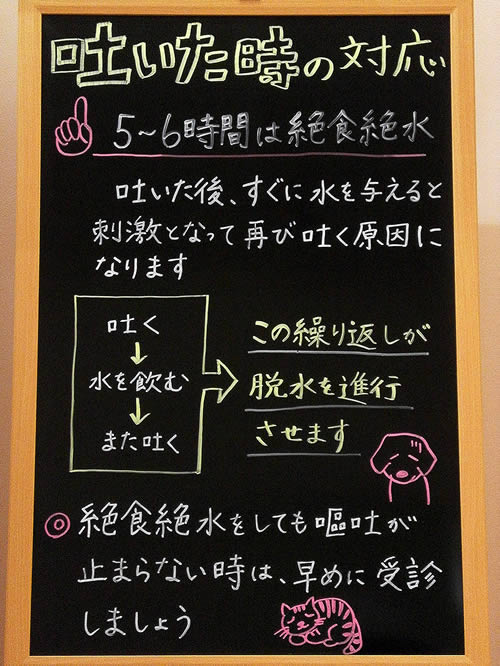 吐いた時の対応
5〜6時間は絶食絶水
吐いた後、すぐに水を与えると
刺激となって再び吐く原因に
なります
吐く
↓
水を飲む
↓
また吐く
この繰り返しが
脱水を進行
させます
◎絶食絶水をしても嘔吐が
止まらない時は、早めに受診
しましょう